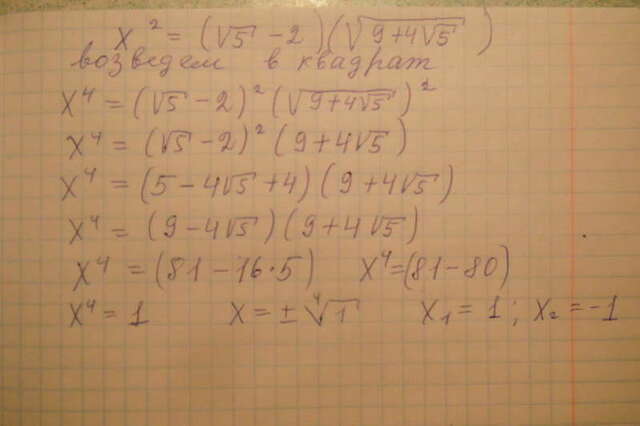 x² = (√5 - 2)(√(9+4√5))
возведем в квадрат
x⁴ = (√5 - 2)²(√(9+4√5))²
x⁴ = (√5 - 2)²(9+4√5)
x⁴ = (5 - 4√5 + 4)(9+4√5)
x⁴ = (9 - 4√5)(9+4√5)
x⁴ = (81 - 16·5) x⁴=(81-80)
x⁴ = 1 x = ± ⁴√1 x₁ = 1; x₂ = -1